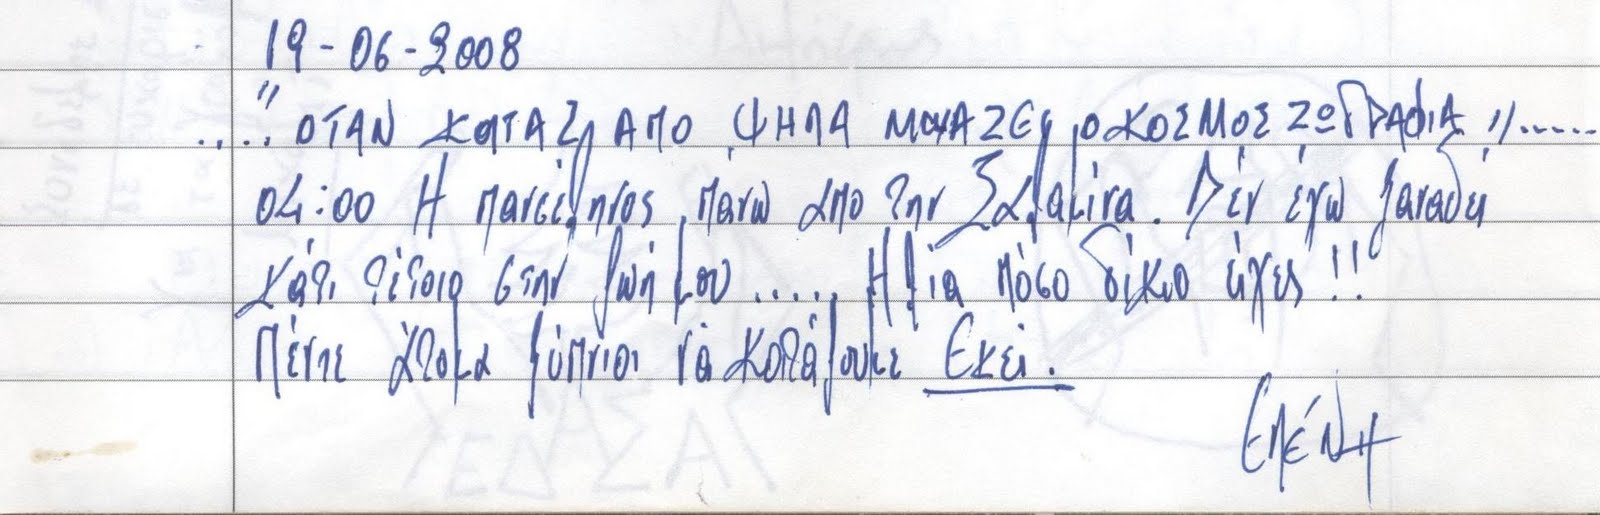 19-06-2008
....." ΟΤΑΝ ΚΟΙΤΑΖΩ ΑΠΟ ΨΗΛΑ ΜΟΙΑΖΕΙ Ο ΚΟΣΜΟΣ ΖΩΓΡΑΦΙΑ "......
04:00 Η πανσέληνος πάνω απο την Σαλαμίνα. Δέν έχω ξαναδεί
κάτι τέτοιο στην ζωή μου ..... Ηλία πόσο δίκιο είχες!!
Πέντε άτομα ξύπνιοι νά κοιτάζουμε Εκεί.
ΕΛΕΝΗ